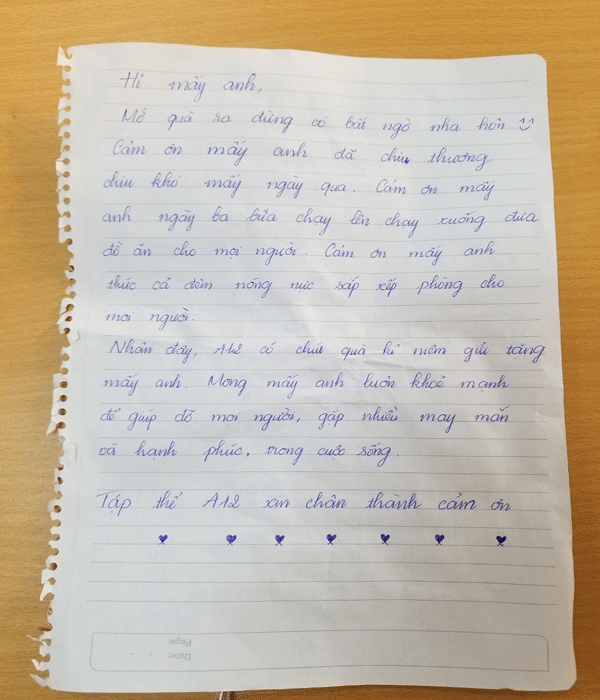 Hi mấy anh,
Mở quà ra đừng có bất ngờ nha hơn :)
Cảm ơn mấy anh đã chịu thương
chịu khó mấy ngày qua. Cảm ơn mấy
anh ngày ba bữa chạy lên chạy xuống đưa
đồ ăn cho mọi người. Cảm ơn mấy anh
thức cả đêm nóng nực sắp xếp phòng cho
mọi người.
Nhân đây, A12 có chút quà kỉ niệm gửi tặng
mấy anh. Mong mấy anh luôn khoẻ mạnh
để giúp đỡ mọi người, gặp nhiều may mắn
và hạnh phúc, trong cuộc sống.
Tập thể A12 xin chân thành cảm ơn
Page:
Date: